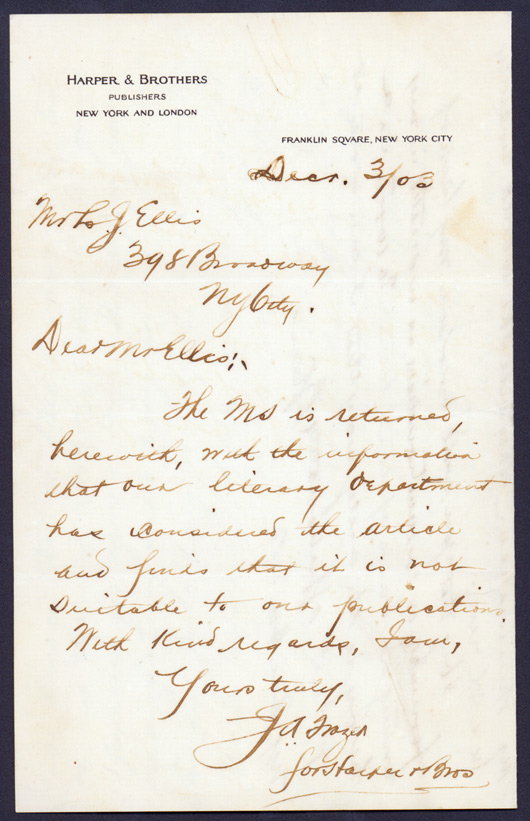 HARPER & BROTHERS
PUBLISHERS
NEW YORK AND LONDON
FRANKLIN SQVARE, NEW YORK CITY
Decr. 3/03
Mr L. J. Ellis
398 Broadway
NY City.
Dear Mr Ellis:
The MS is returned,
herewith, with the information
that our literary department
has considered the article
and finds that it is not
suitable to our publications.
With kind regards, I am,
Yours truly,
J A
for Harper & Bros